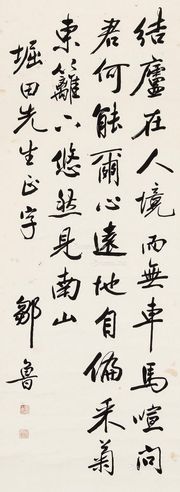 結廬在人境而無車馬喧問
君何能爾心遠地自偏采菊
東籬下悠然見南山
堀田先生正字
鄒魯